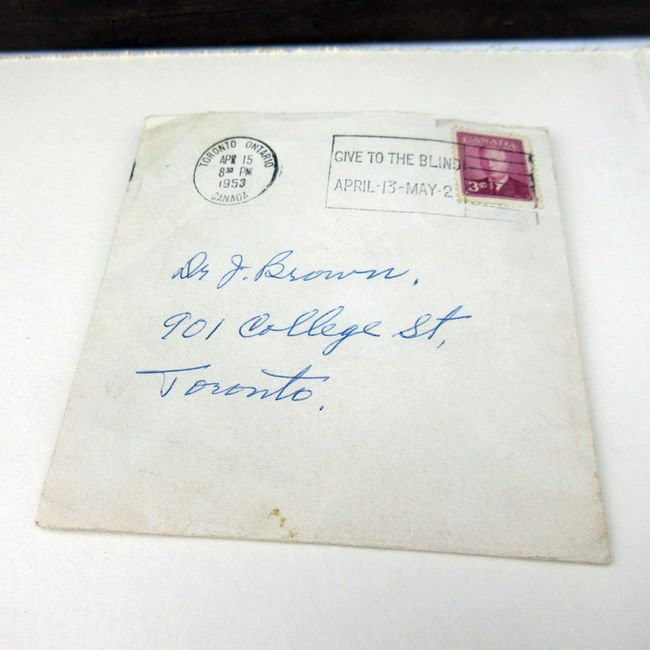 TORONTO ONTARIO
APR 15
8³⁰ PM
1953
CANADA
GIVE TO THE BLIND
APRIL-13-MAY-2
CANADA
3¢
Dr J. Brown.
901 College St,
Toronto.